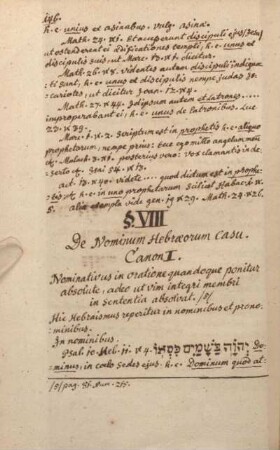 146.
h. e. unius ex asinabus. Vulg. asinæ.
Math. 24. v. 1. Et accesserunt discipuli ejus Jesu
ut ostenderent ei ædificationes templi; h. e. unus ex
discipulis suis, ut Marc. 13. v. 1. dicitur.
Math. 26. v. 8. videntes autem discipuli indigna
ti sunt, h. e. unus ex discipulis nempe judas is-
cariotes, ut dicitur Joan. 12. v. 4.
Math. 27. v. 44. Id ipsum autem et latrones
improperabant ei; h. e. unus de latronibus. Luc
23. v. 39.
Marc. 1. v. 2. Scriptum est in prophetis h. e. aliquo
prophetarum, nempe prius: Ecce ego mitto angelum meum
Malach. 3. v. 1. posterius vero: Vox clamantis in de-
serto Isai. 40. v. 3.
act. 13. v. 40. videte quod dictum est in prophe-
tis h. e. in uno prophetarum scilicet Habac. 1. v.
5. alia exempla vide gen. 19. v. 29. Math. 2. v. 26.
§. VIII
De Nominum Hebræorum Casu.
Canon I.
Nominativus in oratione quandoque ponitur
absolute, adeo ut vim integri membri
in sententia absolvat. /o/
Hic Hebraismus reperitur in nominibus et prono-
minibus.
In nominibus.
Psal. 10. Heb. 11. v. 4. יְהֹוָה בַּשָּׁמַיִם כִּסְאוֹ Do-
minus, in cœlo sedes ejus. h. e. Dominum quod at-
/o/ pag. 56. Num. 255.